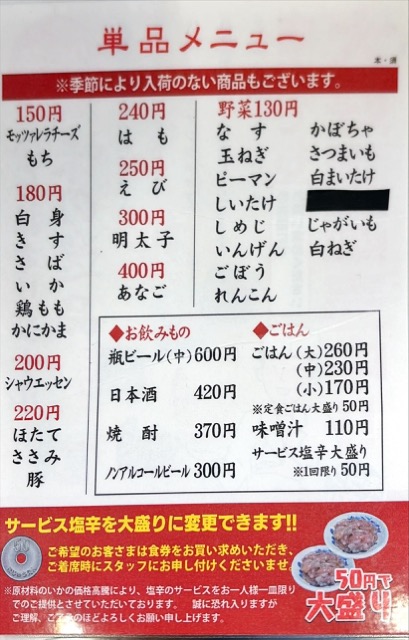 単品メニュー
本・酒
※季節により入荷のない商品もございます。
150円
モッツァレラチーズ
もち
180円
白身
きす
さば
いか
鶏もも
かにかま
200円
シャウエッセン
220円
ほたて
ささみ
豚
240円
はも
250円
えび
300円
明太子
400円
あなご
野菜130円
なす
玉ねぎ
ピーマン
しいたけ
しめじ
いんげん
ごぼう
れんこん
かぼちゃ
さつまいも
白まいたけ
じゃがいも
白ねぎ
◆お飲みもの
瓶ビール(中)600円
日本酒 420円
焼酎 370円
ノンアルコールビール 300円
◆ごはん
ごはん(大)260円
(中)230円
(小)170円
※定食ごはん大盛り50円
味噌汁 110円
サービス塩辛大盛り
※1回限り50円
サービス塩辛を大盛りに変更できます!!
ご希望のお客さまは食券をお買い求めいただき、
ご着席時にスタッフにお申し付けくださいませ。
※原材料のいかの価格高騰により、塩辛のサービスをお一人様一皿限り
でのご提供とさせていただいております。 誠に恐れ入りますが
ご理解、ご了承のほどよろしくお願い申し上げます。
50円で
大盛り